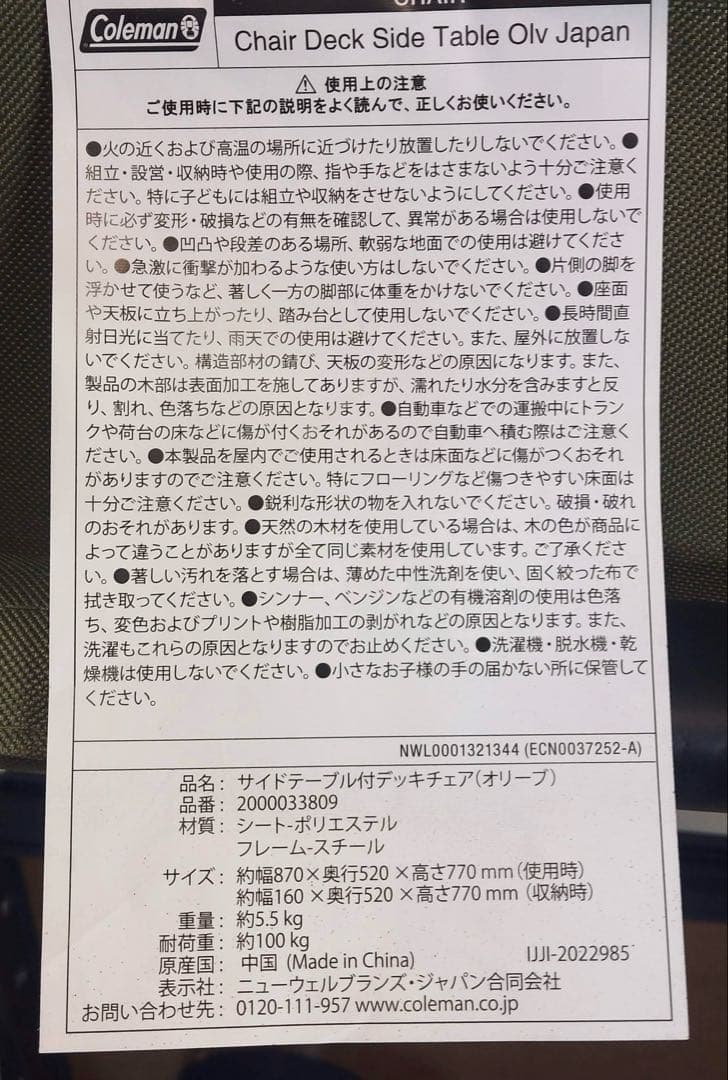 CHAIR
Coleman
Chair Deck Side Table Olv Japan
⚠ 使用上の注意
ご使用時に下記の説明をよく読んで、正しくお使いください。
●火の近くおよび高温の場所に近づけたり放置したりしないでください。●
組立・設営・収納時や使用の際、指や手などをはさまないよう十分ご注意く
ださい。特に子どもには組立や収納をさせないようにしてください。●使用
時に必ず変形・破損などの有無を確認して、異常がある場合は使用しないで
ください。●凹凸や段差のある場所、軟弱な地面での使用は避けてくださ
い。●急激に衝撃が加わるような使い方はしないでください。●片側の脚を
浮かせて使うなど、著しく一方の脚部に体重をかけないでください。●座面
や天板に立ち上がったり、踏み台として使用しないでください。●長時間直
射日光に当てたり、雨天での使用は避けてください。また、屋外に放置しな
いでください。構造部材の錆び、天板の変形などの原因になります。また、
製品の木部は表面加工を施してありますが、濡れたり水分を含みますと反
り、割れ、色落ちなどの原因となります。●自動車などでの運搬中にトラン
クや荷台の床などに傷が付くおそれがあるので自動車へ積む際はご注意く
ださい。●本製品を屋内でご使用されるときは床面などに傷がつくおそれ
がありますのでご注意ください。特にフローリングなど傷つきやすい床面は
十分ご注意ください。●鋭利な形状の物を入れないでください。破損・破れ
のおそれがあります。●天然の木材を使用している場合は、木の色が商品に
よって違うことがありますが全て同じ素材を使用しています。ご了承くださ
い。●著しい汚れを落とす場合は、薄めた中性洗剤を使い、固く絞った布で
拭き取ってください。●シンナー、ベンジンなどの有機溶剤の使用は色落
ち、変色およびプリントや樹脂加工の剥がれなどの原因となります。また、
洗濯もこれらの原因となりますのでお止めください。●洗濯機・脱水機・乾
燥機は使用しないでください。●小さなお子様の手の届かない所に保管して
ください。
NWL0001321344 (ECN0037252-A)
品名: サイドテーブル付デッキチェア(オリーブ)
品番: 2000033809
材質: シート-ポリエステル
フレーム-スチール
サイズ: 約幅870×奥行520×高さ770 mm(使用時)
約幅160×奥行520×高さ770 mm (収納時)
重量: 約5.5 kg
耐荷重: 約100 kg
原産国: 中国 (Made in China) IJJI-2022985
表示社: ニューウェルブランズ・ジャパン合同会社
お問い合わせ先: 0120-111-957 www.coleman.co.jp